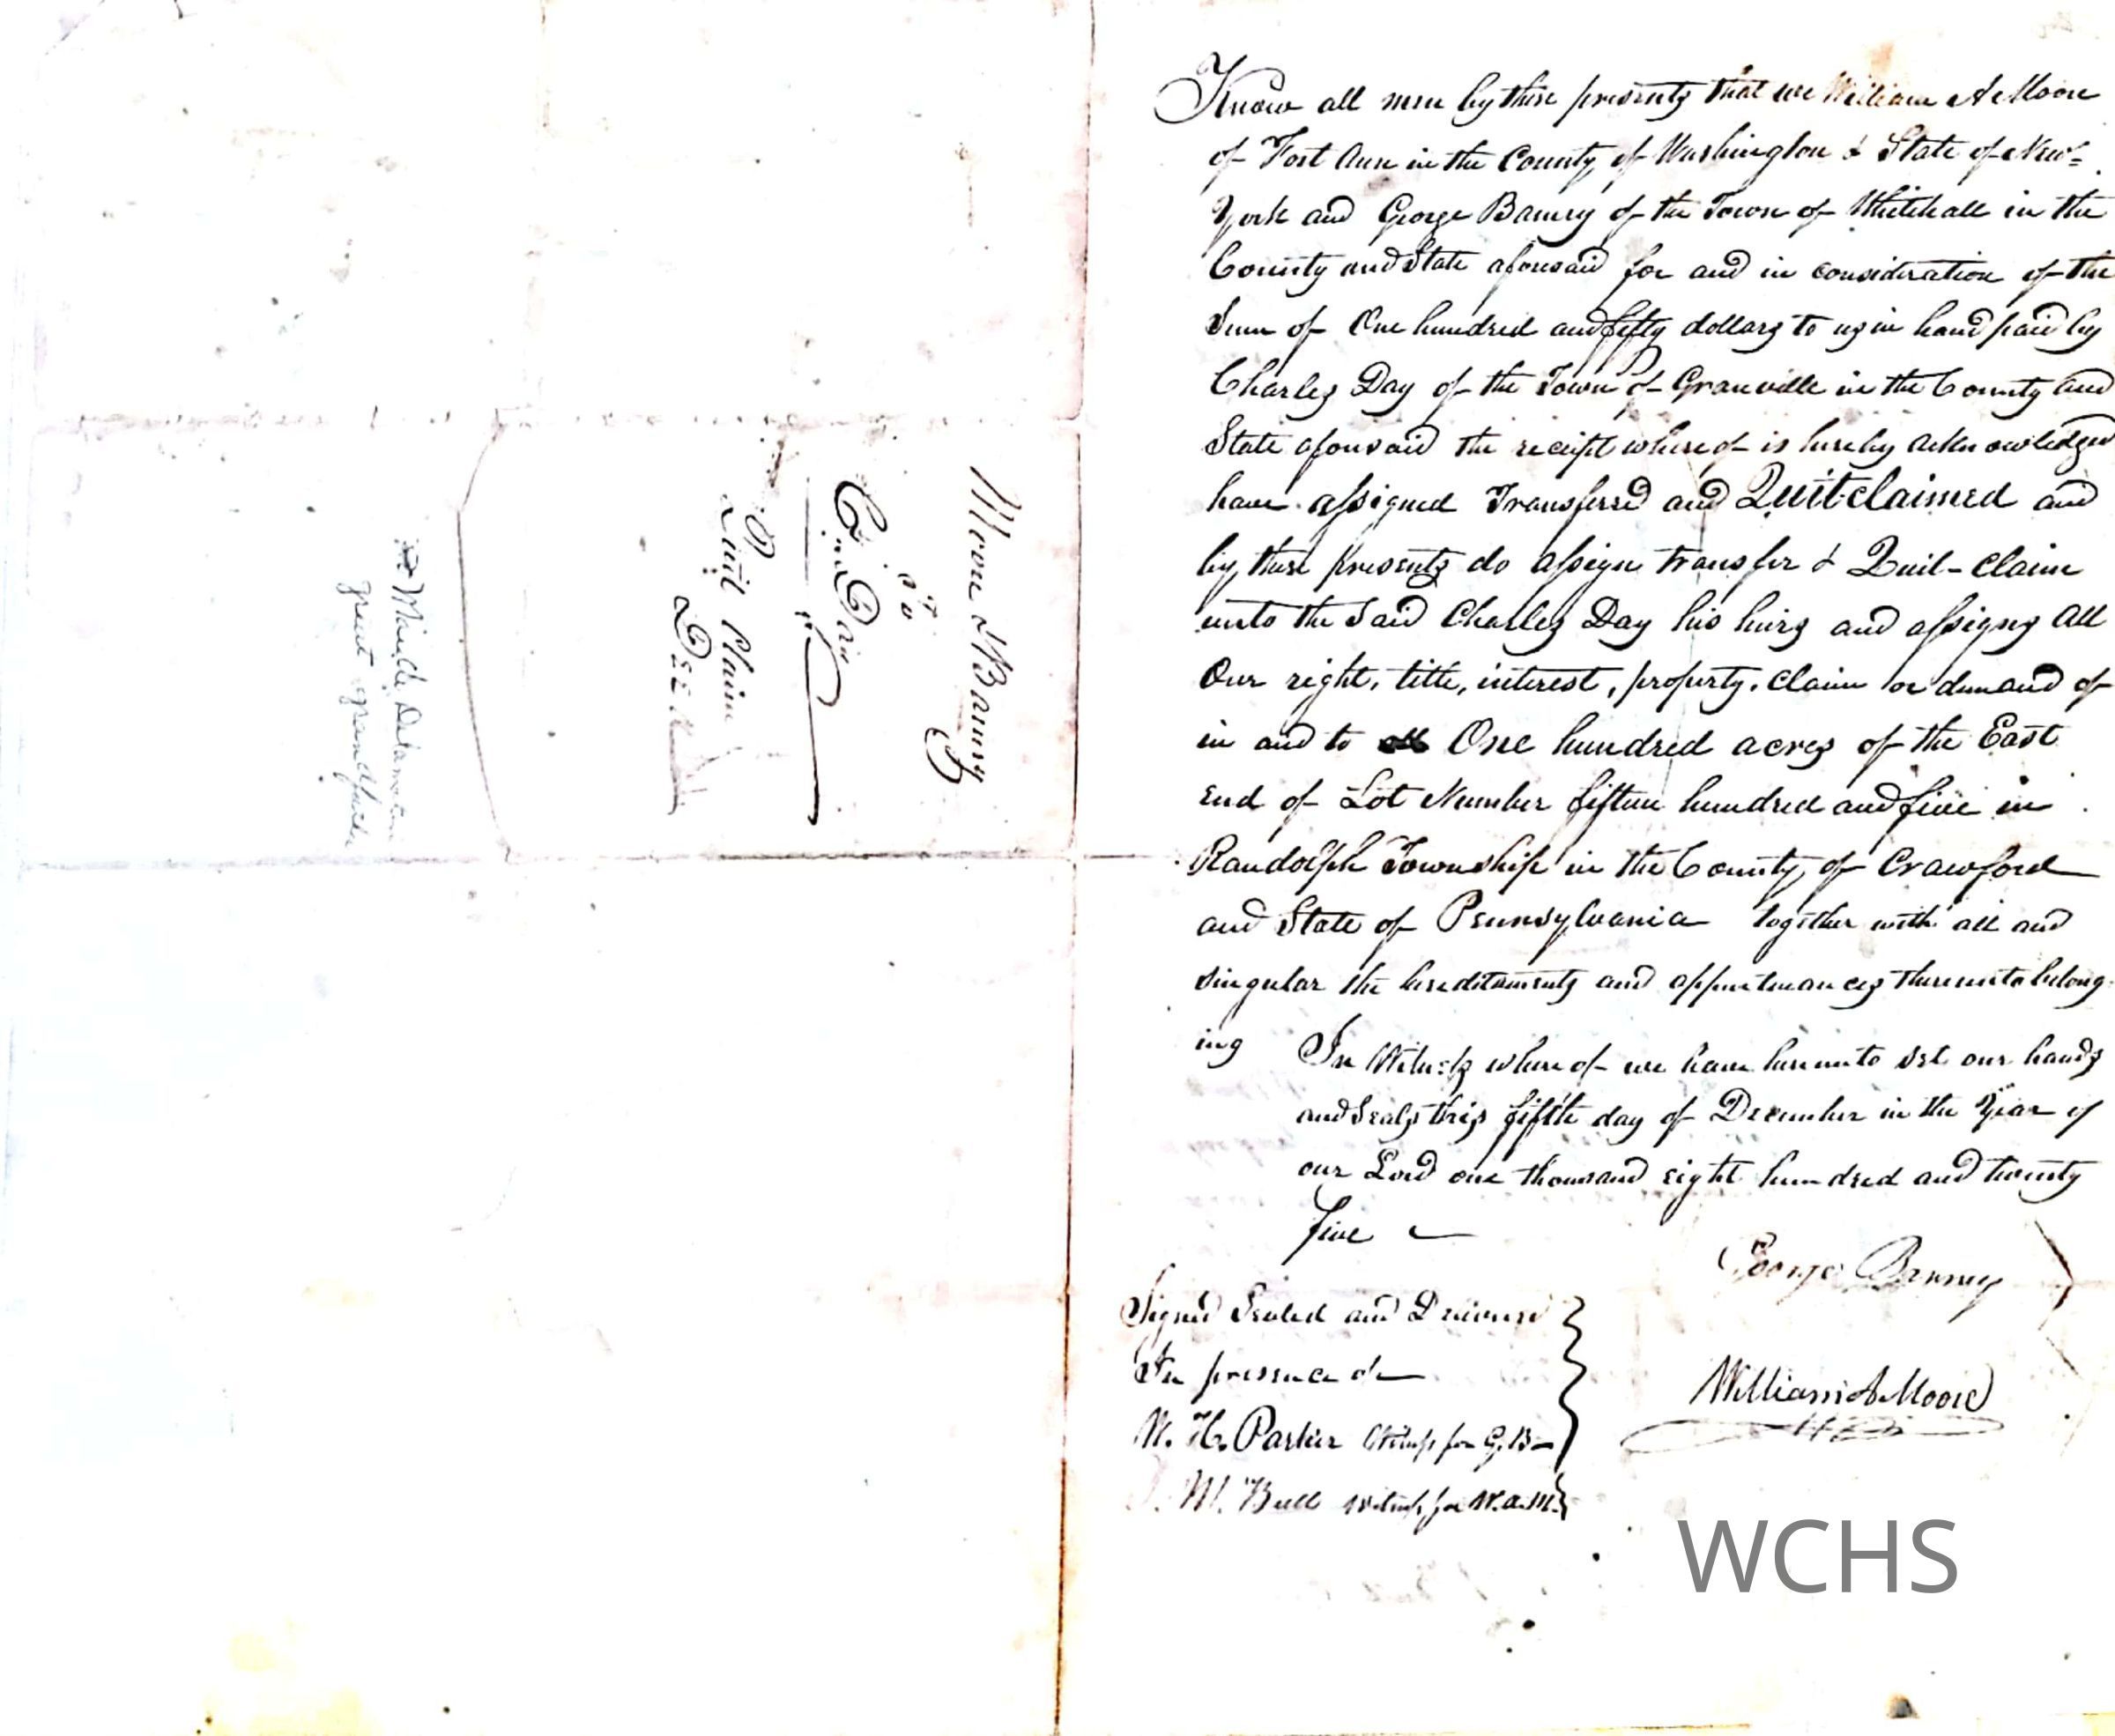 Moore & Barney
to
Chs Day
Quit Claim
Deed
Maude
great grandfather
Know all men by these presents that we William A Moore
of Fort Ann in the County of Washington & State of New=
York and George Barney of the Town of Whitehall in the
County and State aforesaid for and in consideration of the
Sum of One hundred and fifty dollars to us in hand paid by
Charles Day of the Town of Granville in the County and
State aforesaid the receipt whereof is hereby acknowledged
have assigned Transferred and Quit-claimed and
by these presents do assign transfer & Quit-claim
unto the said Charles Day his heirs and assigns all
Our right, title, interest, property, claim or demand of
in and to One hundred acres of the East
End of Lot Number fifteen hundred and five in
Randolph Township in the County of Crawford
and State of Pennsylvania together with all and
singular the hereditaments and appurtenances thereunto belong-
ing In Witness whereof we have hereunto set our hands
and Seals this fifth day of December in the Year of
our Lord one thousand eight hundred and twenty
five
George Barney
Signed Sealed and Delivered
In presence of
William A Moore
M. H. Parker Witness for G. B
M. Bull Witness for W. A. M.
WCHS